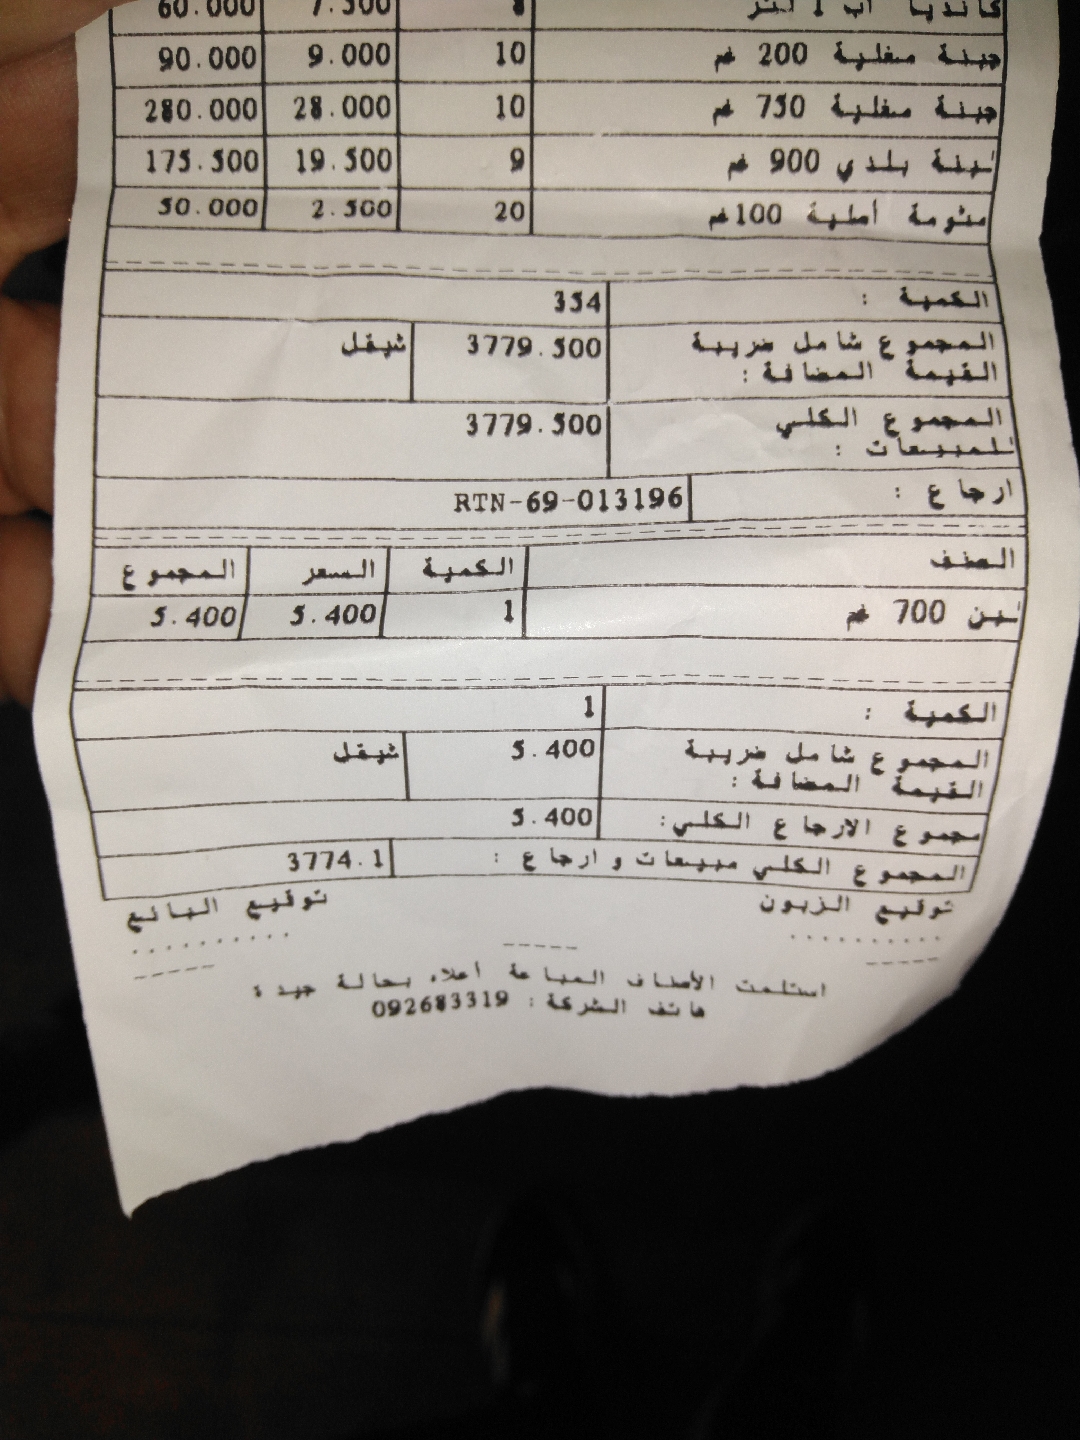 كانديا اب 1 لتر 8 7.500 60.000
جبنة مغلية 200 غم 10 9.000 90.000
جبنة مغلية 750 غم 10 28.000 280.000
لبنة بلدي 900 غم 9 19.500 175.500
مثومة أصلية 100غم 20 2.500 50.000
الكمية : 354
المجموع شامل ضريبة 3779.500 شيقل
القيمة المضافة :
المجموع الكلي 3779.500
للمبيعات :
ارجاع : RTN-69-013196
الصنف الكمية السعر المجموع
لبن 700 غم 1 5.400 5.400
الكمية : 1
المجموع شامل ضريبة 5.400 شيقل
القيمة المضافة :
مجموع الارجاع الكلي: 5.400
المجموع الكلي مبيعات و ارجاع : 3774.1
توقيع الزبون توقيع البائع
استلمت الأصناف المباعة أعلاه بحالة جيدة
هاتف الشركة : 092683319